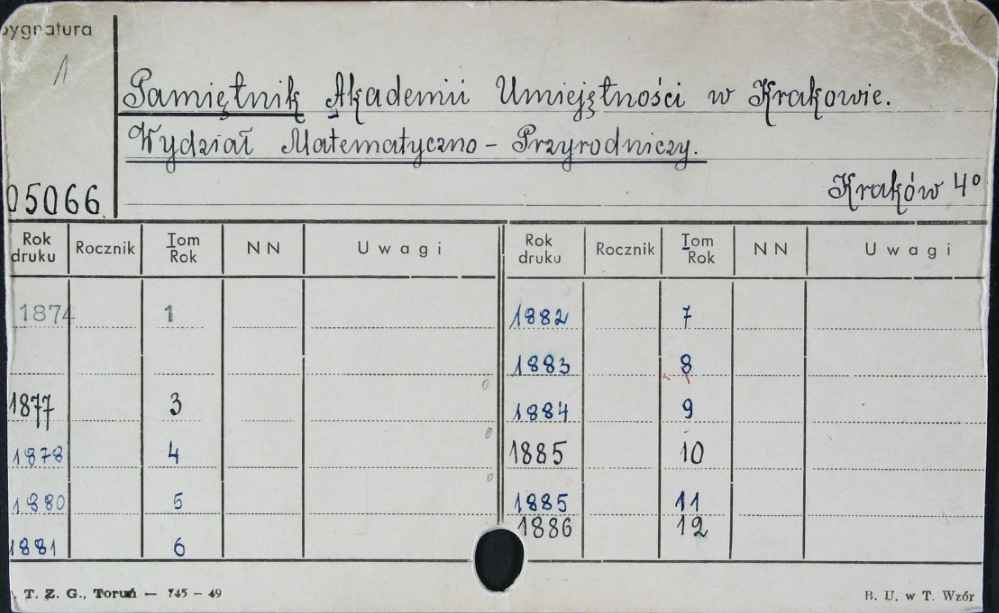 Sygnatura
1
Pamiętnik Akademii Umiejętności w Krakowie.
Wydział Matematyczno - Przyrodniczy.
05066
Kraków 4º
Rok druku Rocznik Tom Rok NN Uwagi Rok druku Rocznik Tom Rok NN Uwagi
1874 1 1882 7
1883 8
1877 3 1884 9
1878 4 1885 10
1880 5 1885 11
1886 12
1881 6
T. Z. G., Toruń — 745 - 49 B. U. w T. Wzór